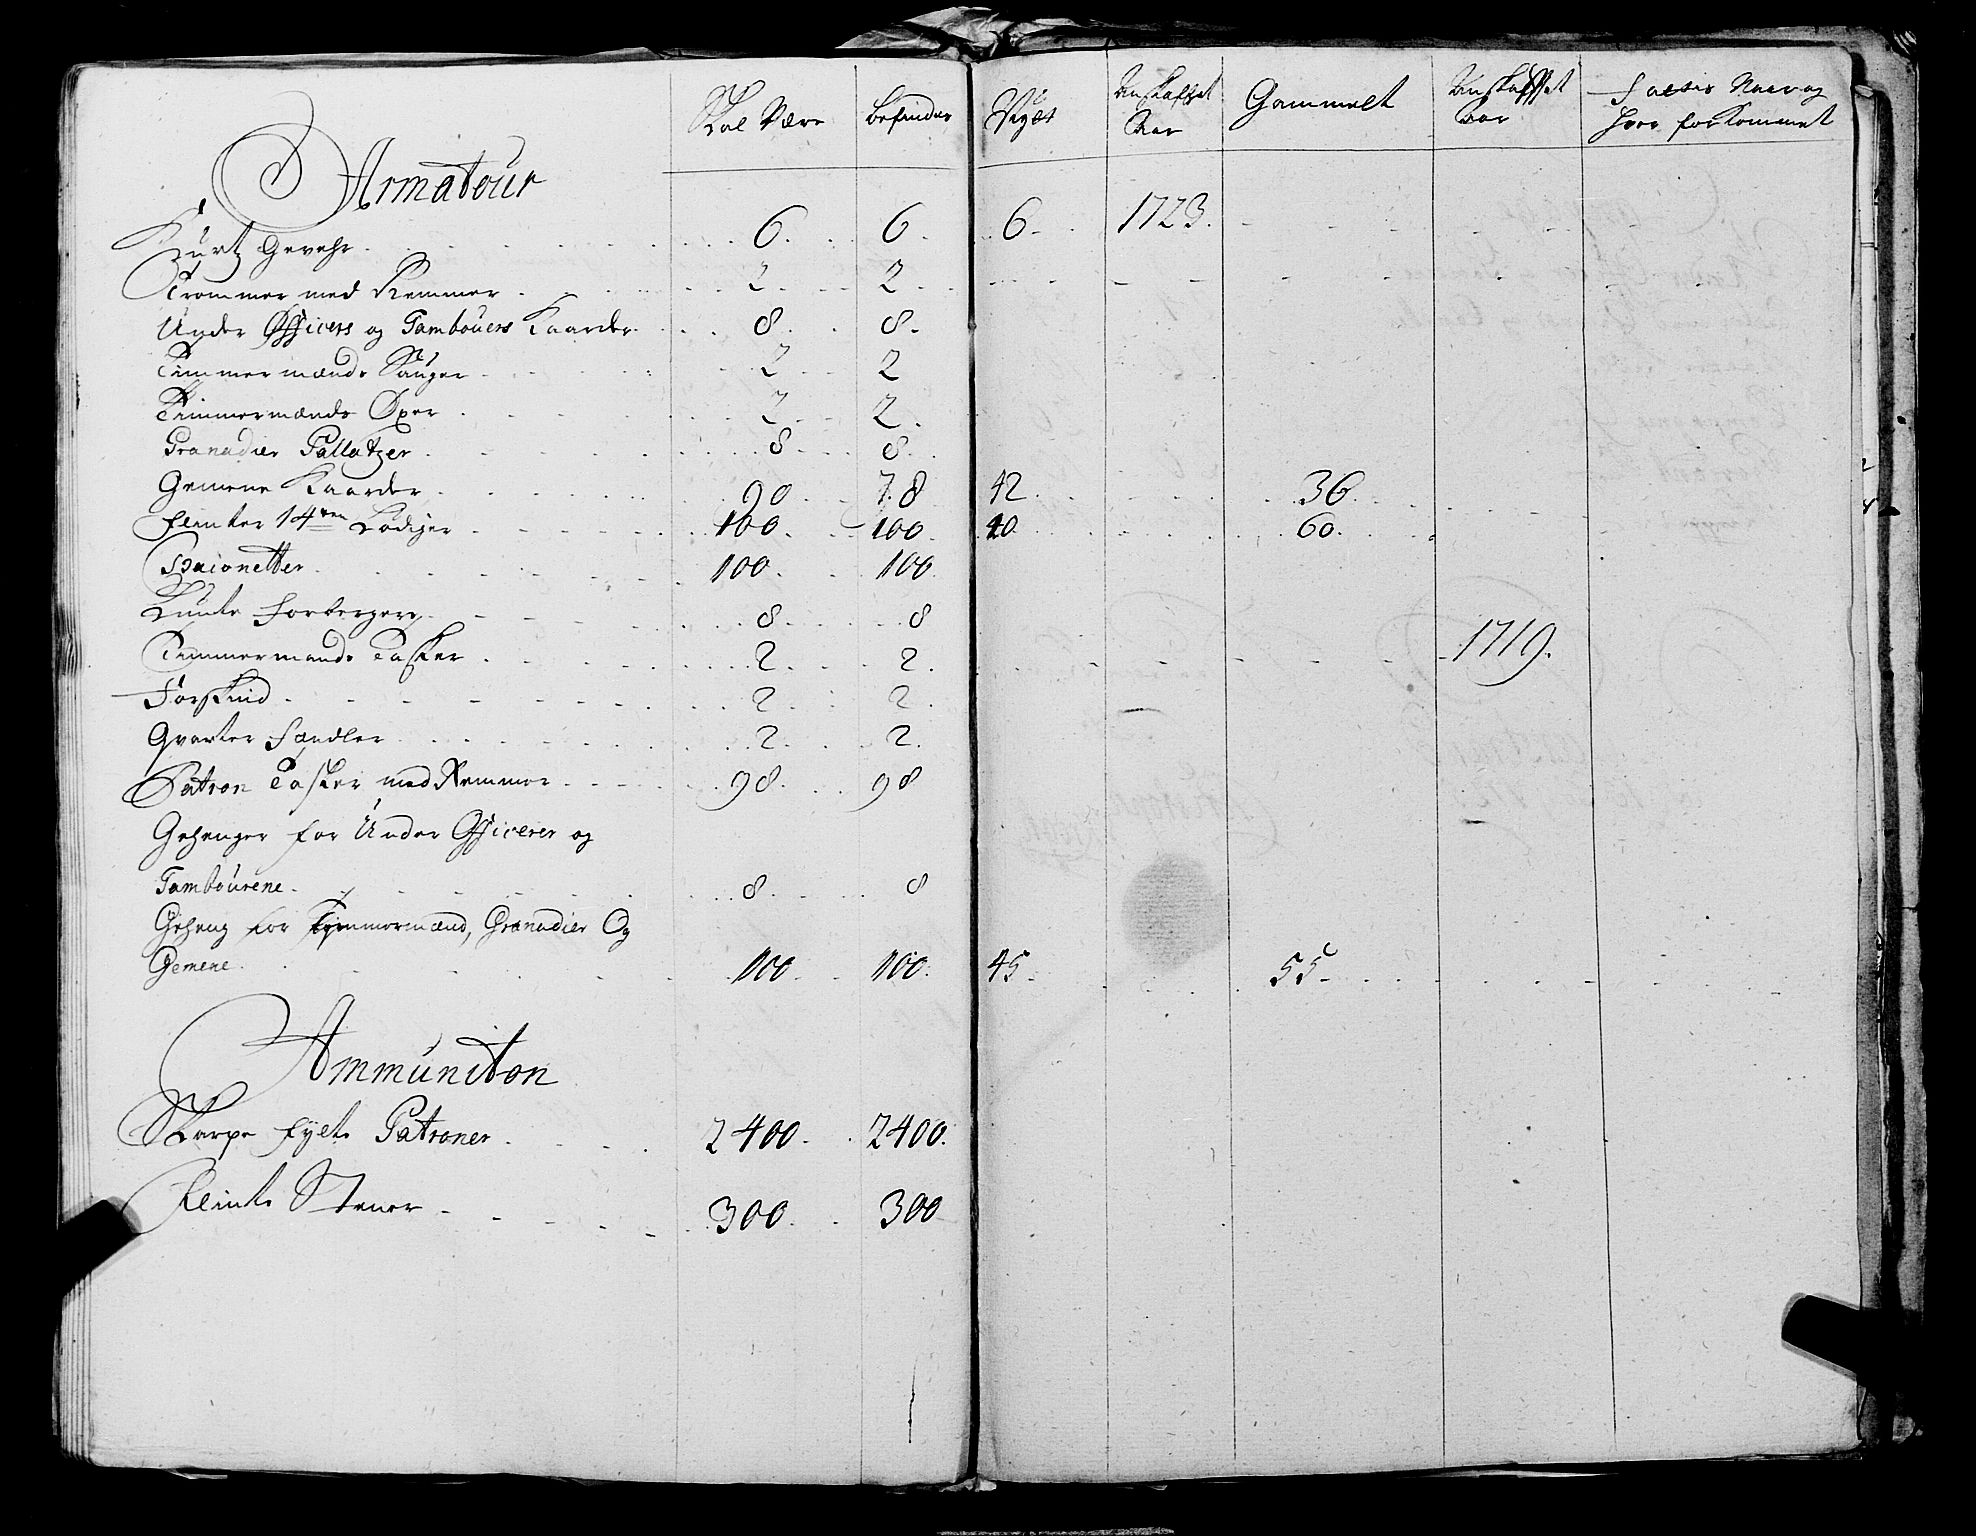 Skal Være Befindes Nyet Anskaffet Gammelt Anskaffet Feiler Naar og
Aar Aar hvor forkommet
Armatour
Kurtz Gevehr 6. 6. 6. 1723.
Trommer med Remmer 2. 2.
Under Officers og Tambouers Kaarder 8. 8.
Timmermænds Sauger 2 2
Timmermænds Øxer 2 2.
Granadier Pallatzer 8 8.
Gemene Kaarder 90 78 42. 36.
Flinter 14ten Lodiger 100 100 40 60.
Baionetter 100. 100.
Lunte Forbergere 8 8
Timmermands Tasker 2. 2. 1719.
Forskind 2 2.
Qvarter Fændler 2. 2.
Patron Tasker med Remmer 98. 98
Gehenger for Under Officerer og
Tambourene 8 8
Geheng for Tymmermænd, Granadier Og
Gemene 100 100. 45. 55.
Ammunition
Skarpe fylte Patroner 2400. 2400.
Flinte Stener 300. 300